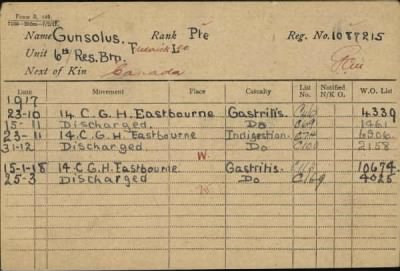 Name Gunsolus. Frederick Leo Rank Pte Reg. No. 1087215
Unit 6th Res. Btn.
Next of Kin Canada
Date Movement Place Casualty List No. Notified N/K O. W.O. List
1917
23-10 14 C.G.H. Eastbourne Gastritis. 4339
15-11 Discharged. Do 1461
23-11 14 C.G.H. Eastbourne Indigestion. C74 6906
31-12 Discharged. Do C100 2158
W.
15-1-18 14 C.G.H. Eastbourne Gastritis. C113 10674
25-3 Discharged Do C169 4025